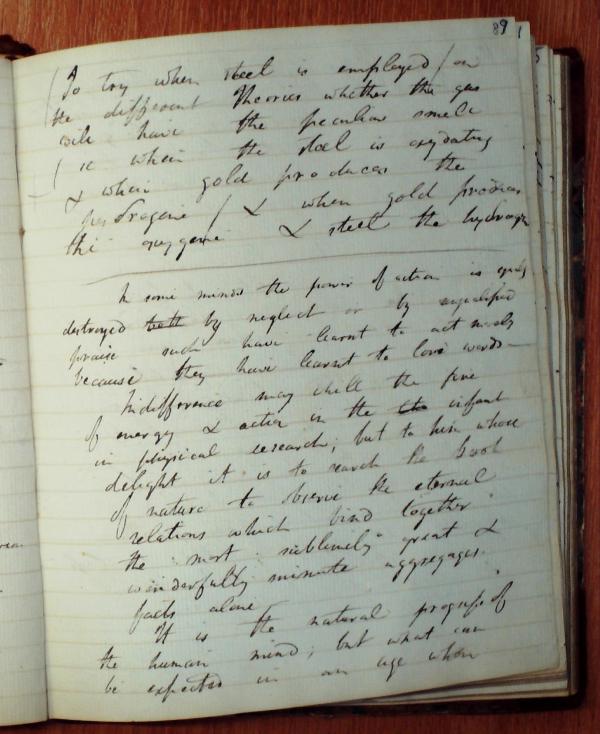 89
To try when steel is employed / on
the different Theories whether the gas
will have the peculiar smell
/ ie when the steel is oxydating
& when gold produces the
hydrogene / & when gold produces
the oxygene & steel the hydrogn
In some minds the power of action is equally
destroyed by neglect or by unqualified
praise such have learnt to act merely
because they have learnt to love words
Indifference may chill the fire
of energy & action in the infant
in physical research; but to him whose
delight it is to search the book
of nature to observe the eternal
relations which bind together
the most sublimely great &
wonderfully minute aggregates.
facts alone
It is the natural progress of
the human mind; but what can
be expected in an age when